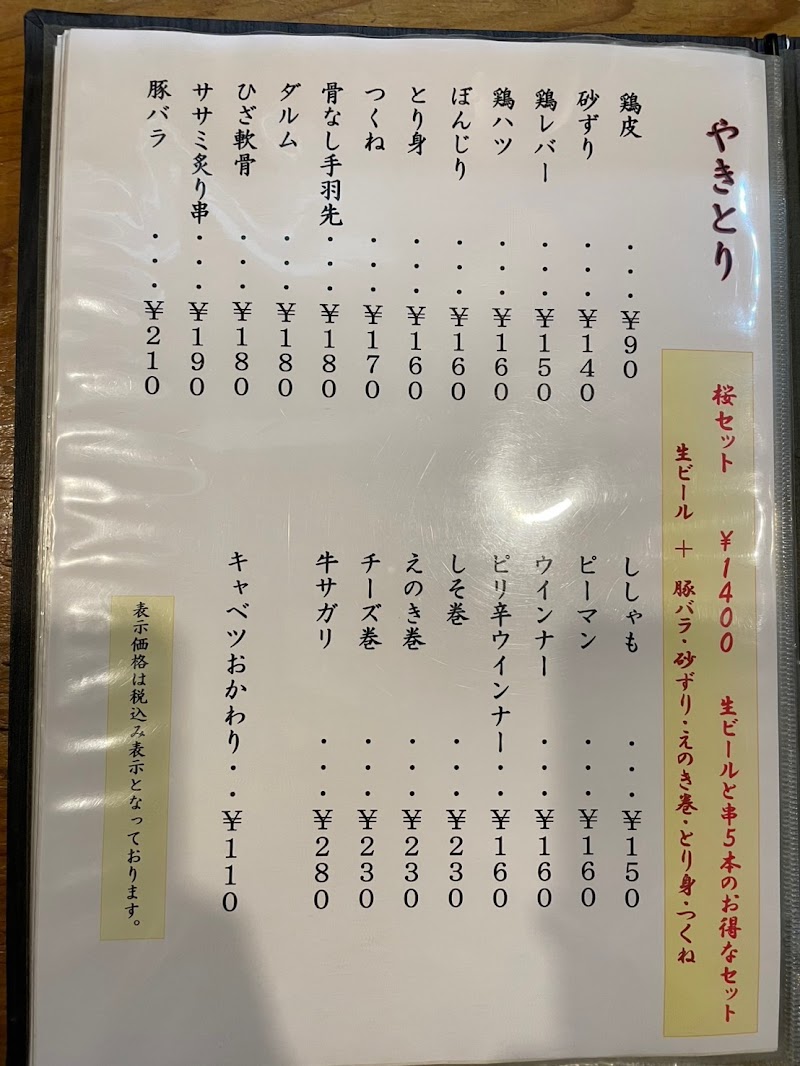 やきとり
桜セット ¥1400 生ビールと串5本のお得なセット
生ビール + 豚バラ・砂ずり・えのき巻・とり身・つくね
鶏皮・・・¥90
砂ずり・・・¥140
鶏レバー・・・¥150
鶏ハツ・・・¥160
ぼんじり・・・¥160
とり身・・・¥160
つくね・・・¥170
骨なし手羽先・・・¥180
ダルム・・・¥180
ひざ軟骨・・・¥180
ササミ炙り串・・・¥190
豚バラ・・・¥210
ししゃも・・・¥150
ピーマン・・・¥160
ウインナー・・・¥160
ピリ辛ウインナー・・¥160
しそ巻・・・¥230
えのき巻・・・¥230
チーズ巻・・・¥230
牛サガリ・・・¥280
キャベツおかわり・・¥110
表示価格は税込み表示となっております。